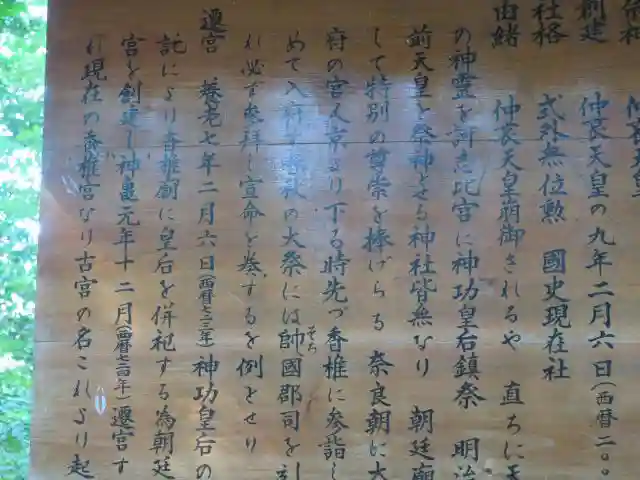 仲哀天皇
創建 仲哀天皇の九年二月六日(西暦二〇〇
社格 式外無位勲 國史現在社
由緒 仲哀天皇崩御されるや 直ちに天
の神霊を 此宮に神功皇后鎮祭 明治
前天皇を祭神とせる神社皆無なり 朝廷廟
して特別の尊崇を捧げらる 奈良朝に大
府の官人京より下る時先づ香椎に参詣し
めて入府す 春秋の大祭には帥そち國郡司を引
れ必ず参拝し宣命を奏するを例とせり
遷宮 養老七年二月六日(西暦七二三年)神功皇后の
託により香椎廟に皇后を併祀する為朝廷
宮を創建し神亀元年十二月(西暦七二四年)遷宮す
れ現在の香椎宮なり古宮の名これより起